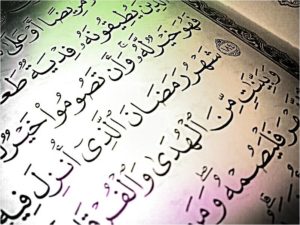 مَّرِيضًا أَوْ عَلَىٰ
يُطِيقُونَهُۥ فِدْيَةٌ طَعَا
فَهُوَ خَيْرٌ لَّهُۥ وَأَن تَصُومُوا۟ خَيْرٌ
شَهْرُ رَمَضَانَ ٱلَّذِىٓ أُنزِلَ فِيهِ
وَبَيِّنَٰتٍ مِّنَ ٱلْهُدَىٰ وَٱلْفُرْقَا
فَلْيَصُمْهُ وَمَن